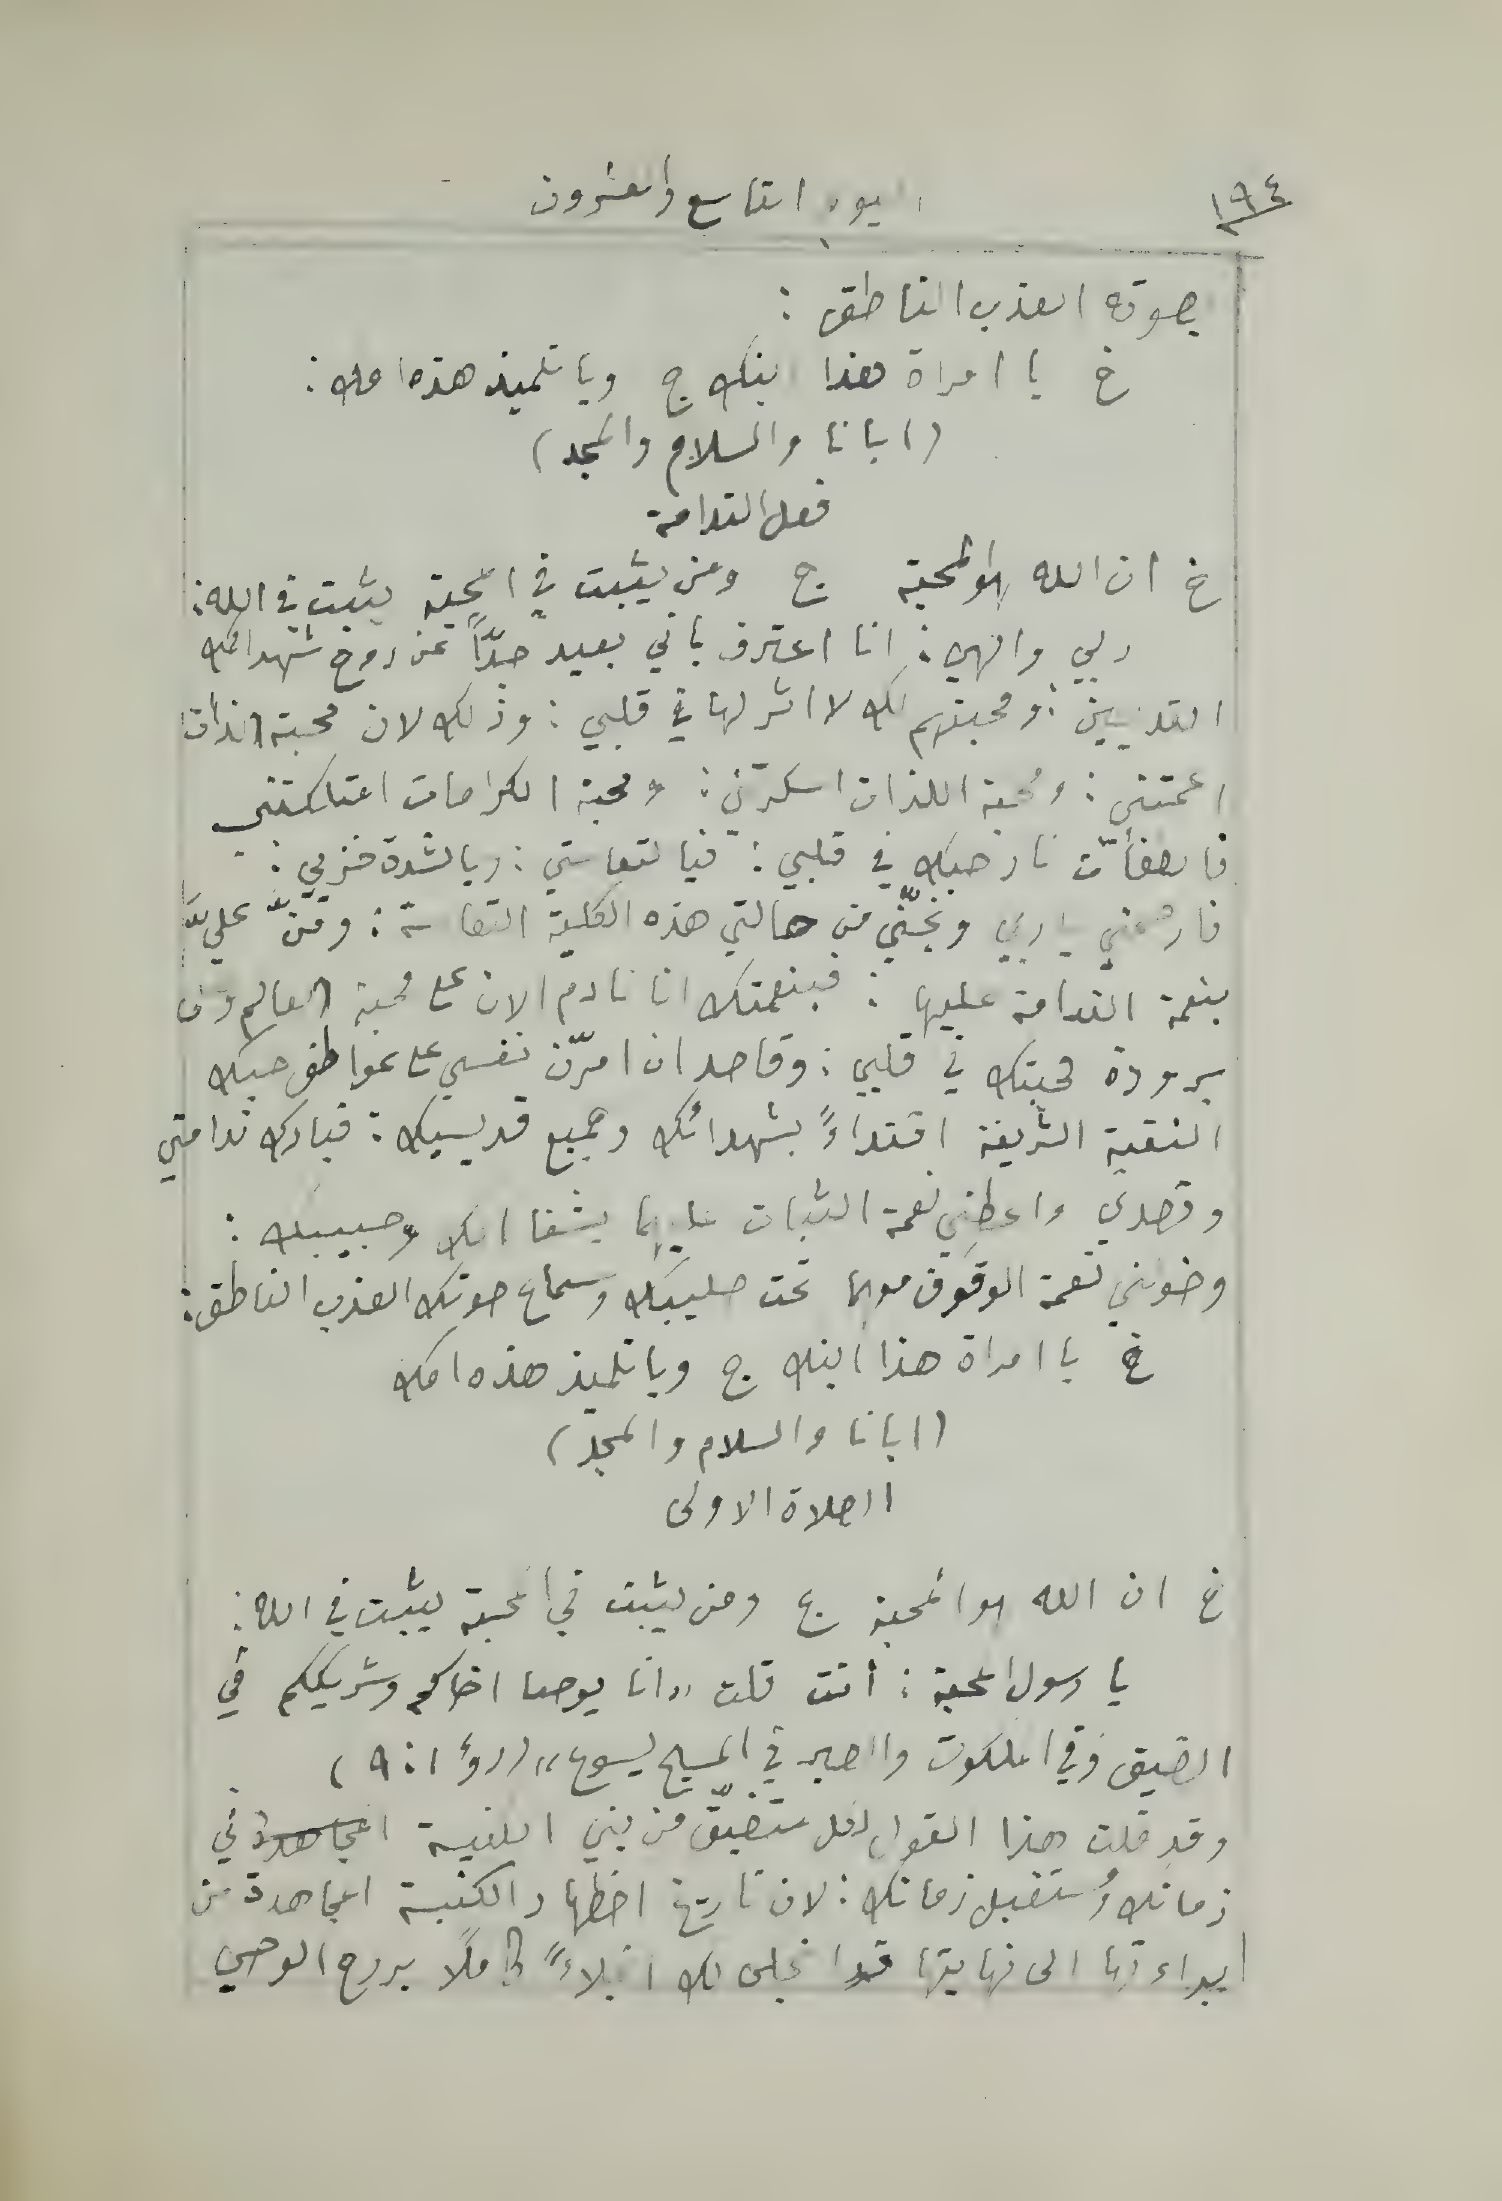 ١٩٤
اليوم التاسع والعشرون
بصوته العذب الناطق :
خ يا امراة هذا ابنك ج ويا تلميذ هذه امك :
(ابانا والسلام والمجد)
فعل الندامة
خ ان الله هو المحبة ج ومن يثبت في المحبة يثبت في الله :
ربي والهي : انا اعترف باني بعيد جدّاً عن روح شهدائك
القديسين : ومحبتهم لك لا اثر لها في قلبي : وذلك لان محبة الذات
اعمتني : ومحبة اللذات اسكرتني : ومحبة الكرامات امتلكتني
فانطفأت نار حبك في قلبي : فيا لتعاستي : ويا لشدة خزيي :
فارحمني يا ربي ونجّني من حالتي هذه الكلية التعاسة : ومُنّ عليّ
بنعمة الندامة عليها : فبنعمتك انا نادم الان على محبة العالم وعن
برودة محبتك في قلبي : وقاصد ان امرّن نفسي على عواطف حبك
النقية الشريفة اقتداءً بشهدائك وجميع قديسيك : فبارك ندامتي
وقصدي واعطني نعمة الثبات عليهما بشفاعة امك وحبيبك :
وخولني نعمة الوقوف معهما تحت صليبك وسماع صوتك العذب الناطق :
خ يا امراة هذا ابنك ج ويا تلميذ هذه امك
(ابانا والسلام والمجد)
الصلاة الاولى
خ ان الله هو المحبة ج ومن يثبت في المحبة يثبت في الله :
يا رسول المحبة : أنت قلت "انا يوحنا اخاكم وشريككم في
الضيق وفي الملكوت والصبر في المسيح يسوع" (رؤ ١ : ٩)
وقد قلت هذا القول لكل متضيّق من بني الكنيسة المجاهدة في
زمانك ومستقبل زمانك : لان تاريخ اضطهاد الكنيسة المجاهدة من
ابداءتها الى نهايتها قد انجلى لك انجلاءً كاملًا بروح الوحي